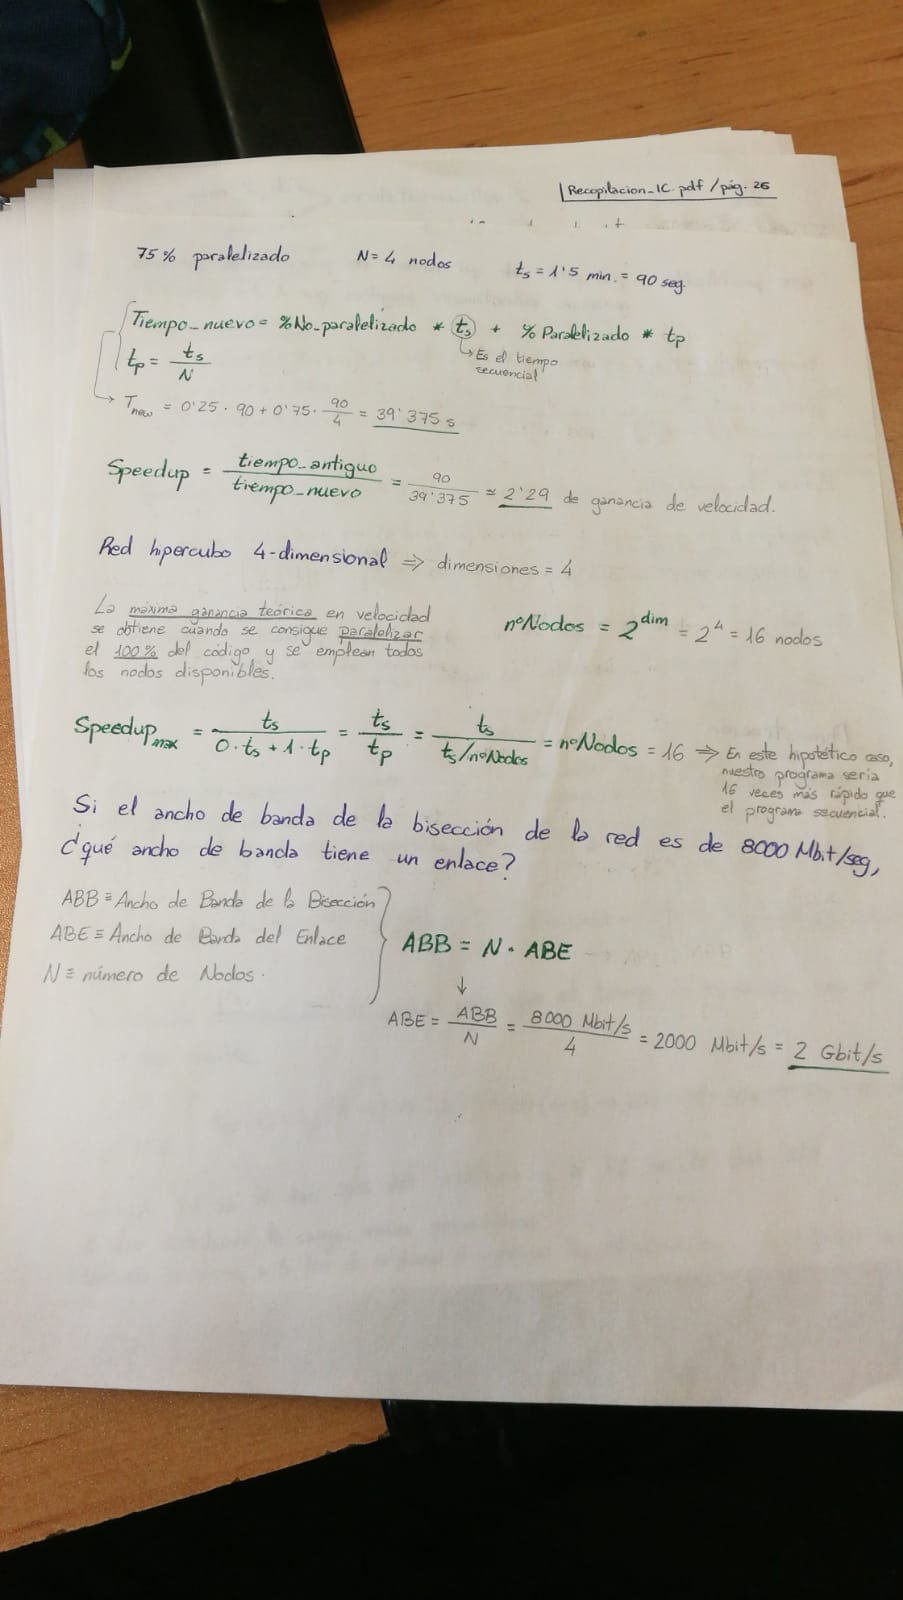 Recopilacion_IC.pdf / pág. 26
75% paralelizado N = 4 nodos ts = 1'5 min. = 90 seg.
Tiempo_nuevo = %No_paralelizado * ts + % Paralelizado * tp
↳ Es el tiempo
secuencial
tp = ts / N
→ Tnew = 0'25 · 90 + 0'75 · 90/4 = 39'375 s
Speedup = tiempo_antiguo / tiempo_nuevo = 90 / 39'375 ≃ 2'29 de ganancia de velocidad.
Red hipercubo 4-dimensional ⇒ dimensiones = 4
La máxima ganancia teórica en velocidad
se obtiene cuando se consigue paralelizar
el 100% del código y se emplean todos
los nodos disponibles.
nºNodos = 2^dim = 2^4 = 16 nodos
Speedup max = ts / (0 · ts + 1 · tp) = ts / tp = ts / (ts/nºNodos) = nºNodos = 16 ⇒ En este hipotético caso,
nuestro programa sería
16 veces más rápido que
el programa secuencial.
Si el ancho de banda de la bisección de la red es de 8000 Mbit/seg,
¿qué ancho de banda tiene un enlace?
ABB ≡ Ancho de Banda de la Bisección
ABE ≡ Ancho de Banda del Enlace
N ≡ número de Nodos.
ABB = N · ABE
↓
ABE = ABB / N = 8000 Mbit/s / 4 = 2000 Mbit/s = 2 Gbit/s